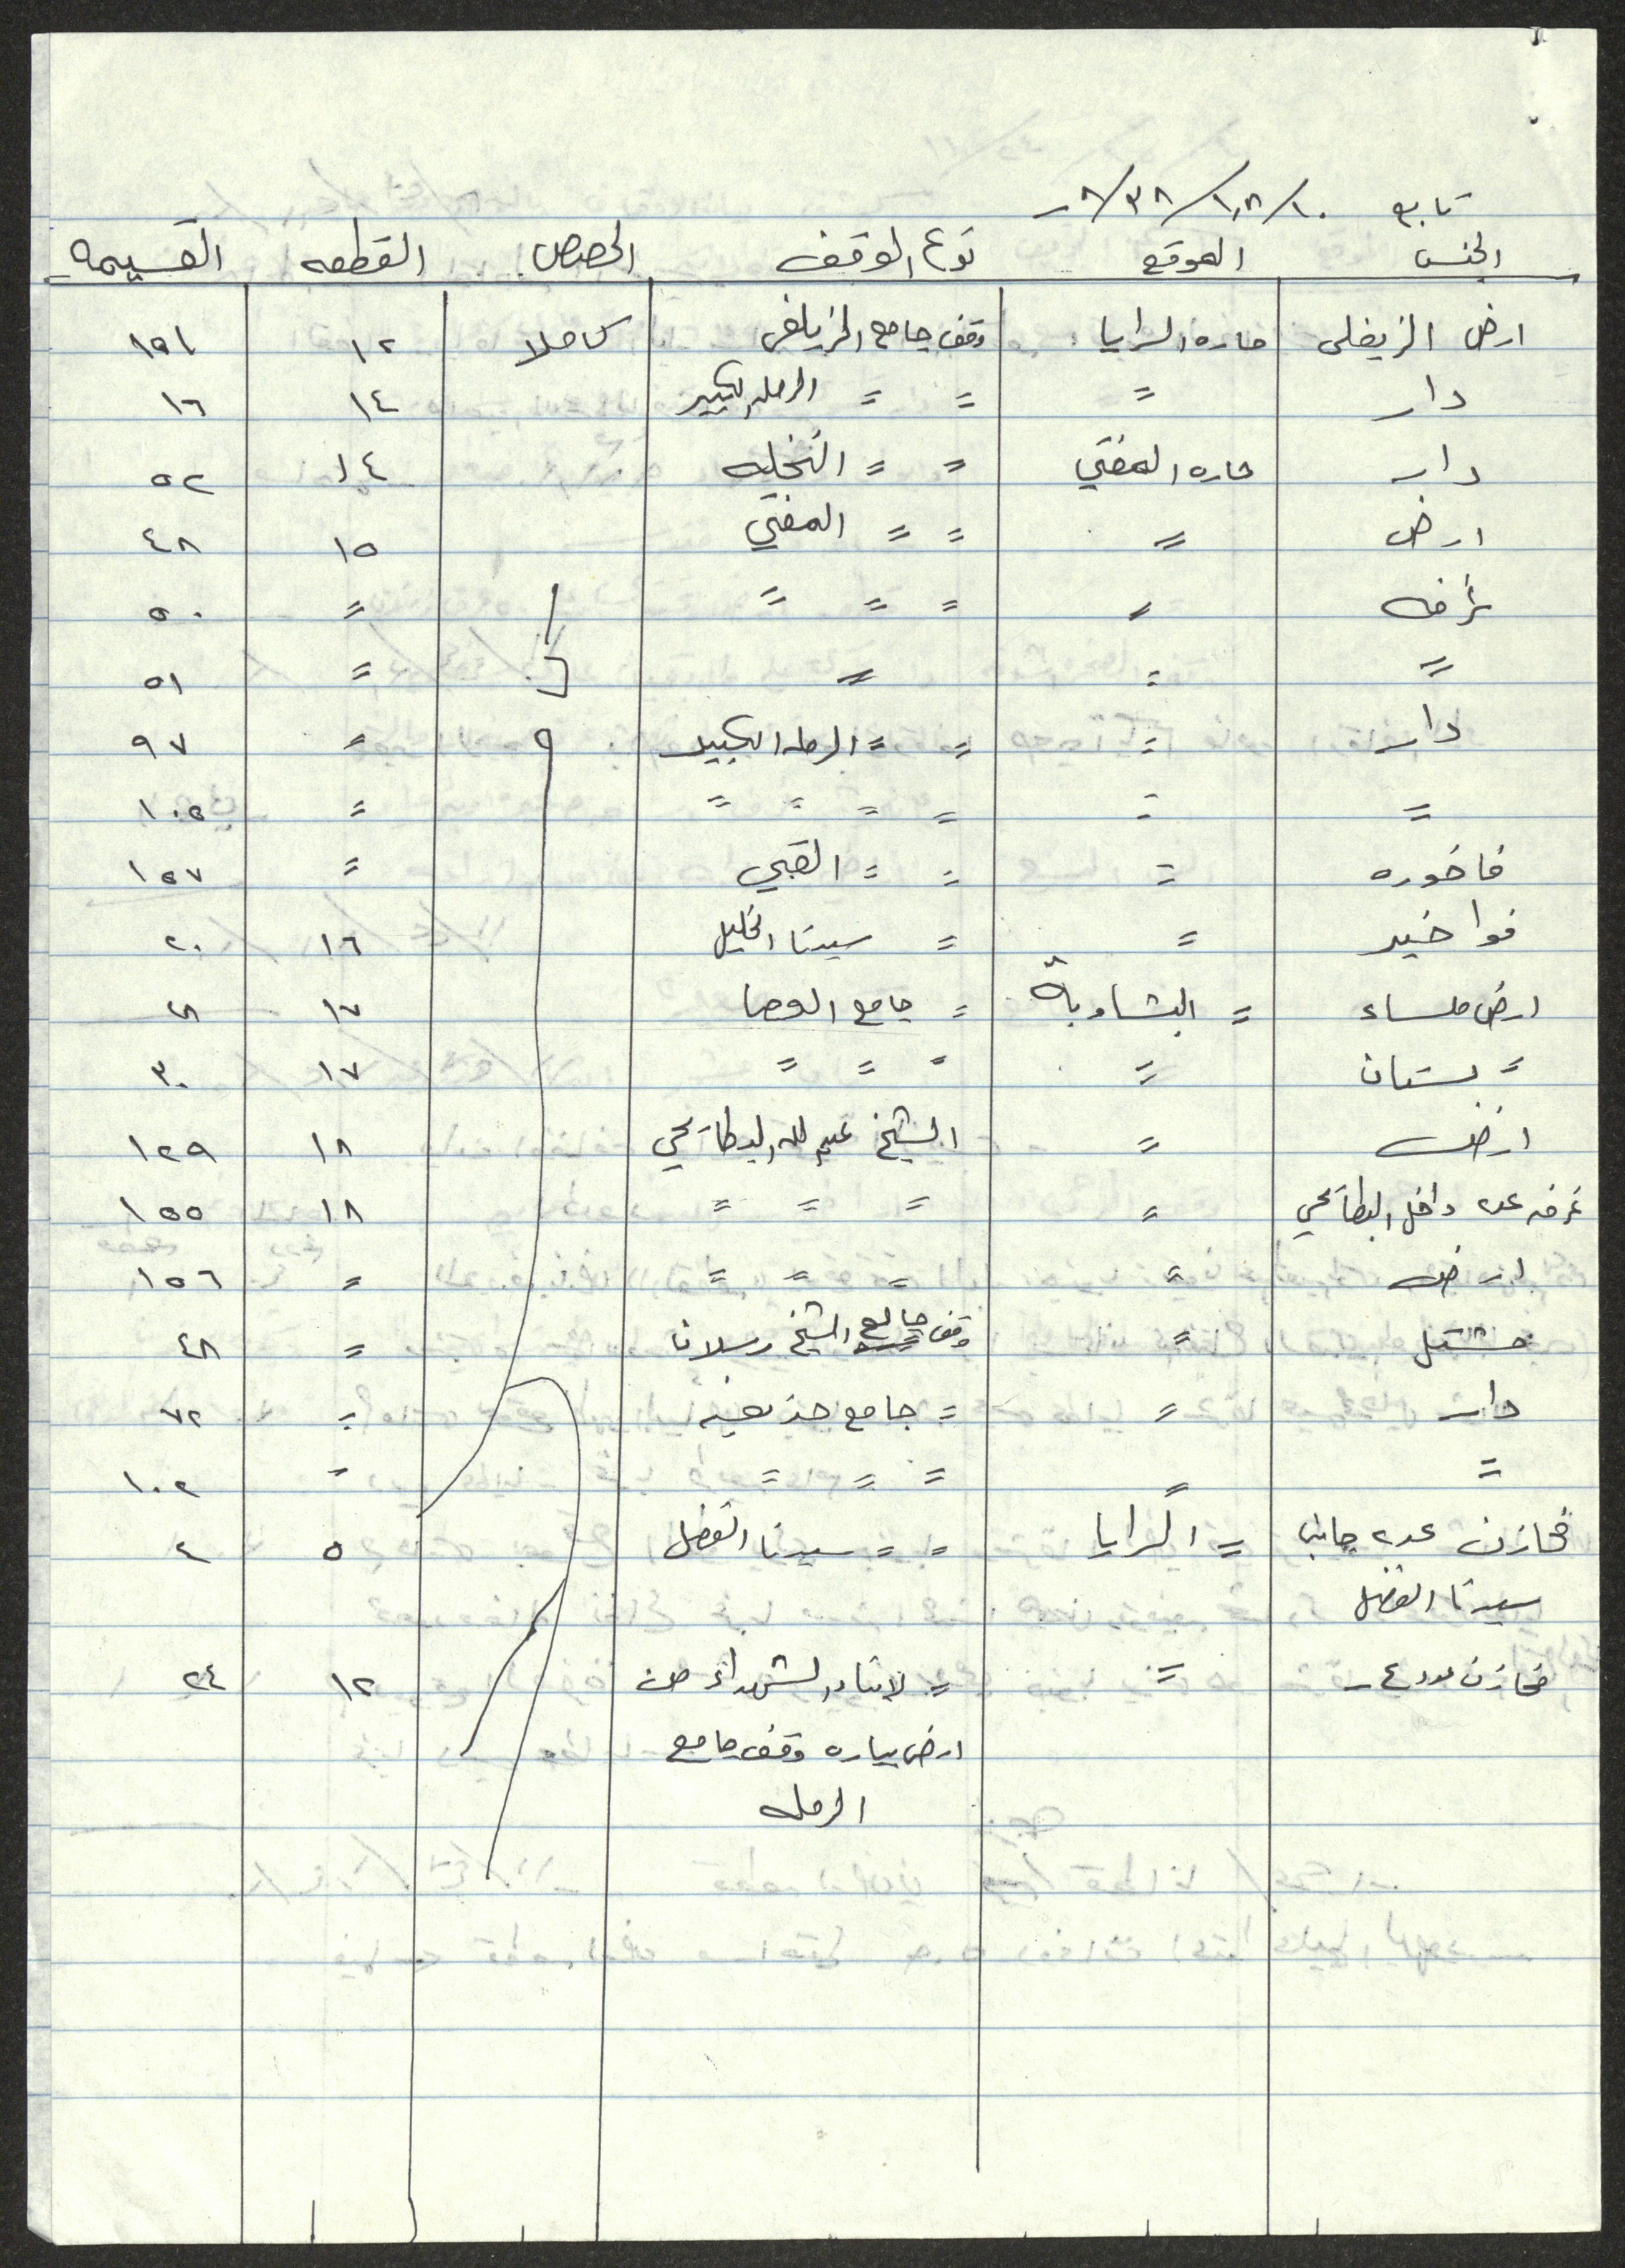 تابع ١٠/١٨/٣٨/٨
الجنس الموقع نوع الوقف الحصص القطعه القسيمه
ارض الزيفلى حاره السرايا وقف جامع كاملا ١٢ ١٥١
دار = = = الرمله الكبير ١٤ ١٦
دار حاره المفتي = = النخليه ١٤ ٥٢
ارض = = = المفتي ١٥ ٤٨
غرفه = = = = = ٥٠
= = = = ٥١
دار = = = الرمله الكبير = ٩٧
= = = = = = = ١٠٥
فاخوره = = = القبي = ١٥٧
فواخير = = سيدنا الخليل ١٦ ٢٠
ارض ملساء = = جامع ١٧
= بستان = = = = ١٧ ٣٠
ارض = الشيخ عبدالله البطايحي ١٨ ١٢٩
غرفه عدد داخل البطايحي = = = = ١٨ ١٥٥
ارض = = = = = ١٥٦
مشتل = وقف جامع الشيخ رسلان = ٤٨
دار = = جامع = ٧٢
= = = = = = ١٠٢
مخازن عدد ٢ جانب = السرايا = = سيدنا الفضل ٥ ٤
سيدنا الفضل
مخازن عدد ٤ = = لابناء الشهداء من ١٢ ٢٤
ارض بياره وقف جامع
الرمله